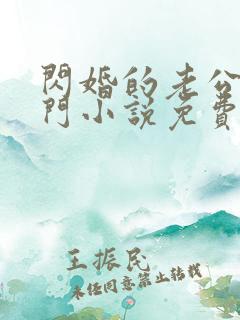 閃婚的老公
門小說免費
王振民
未經同意禁止轉載